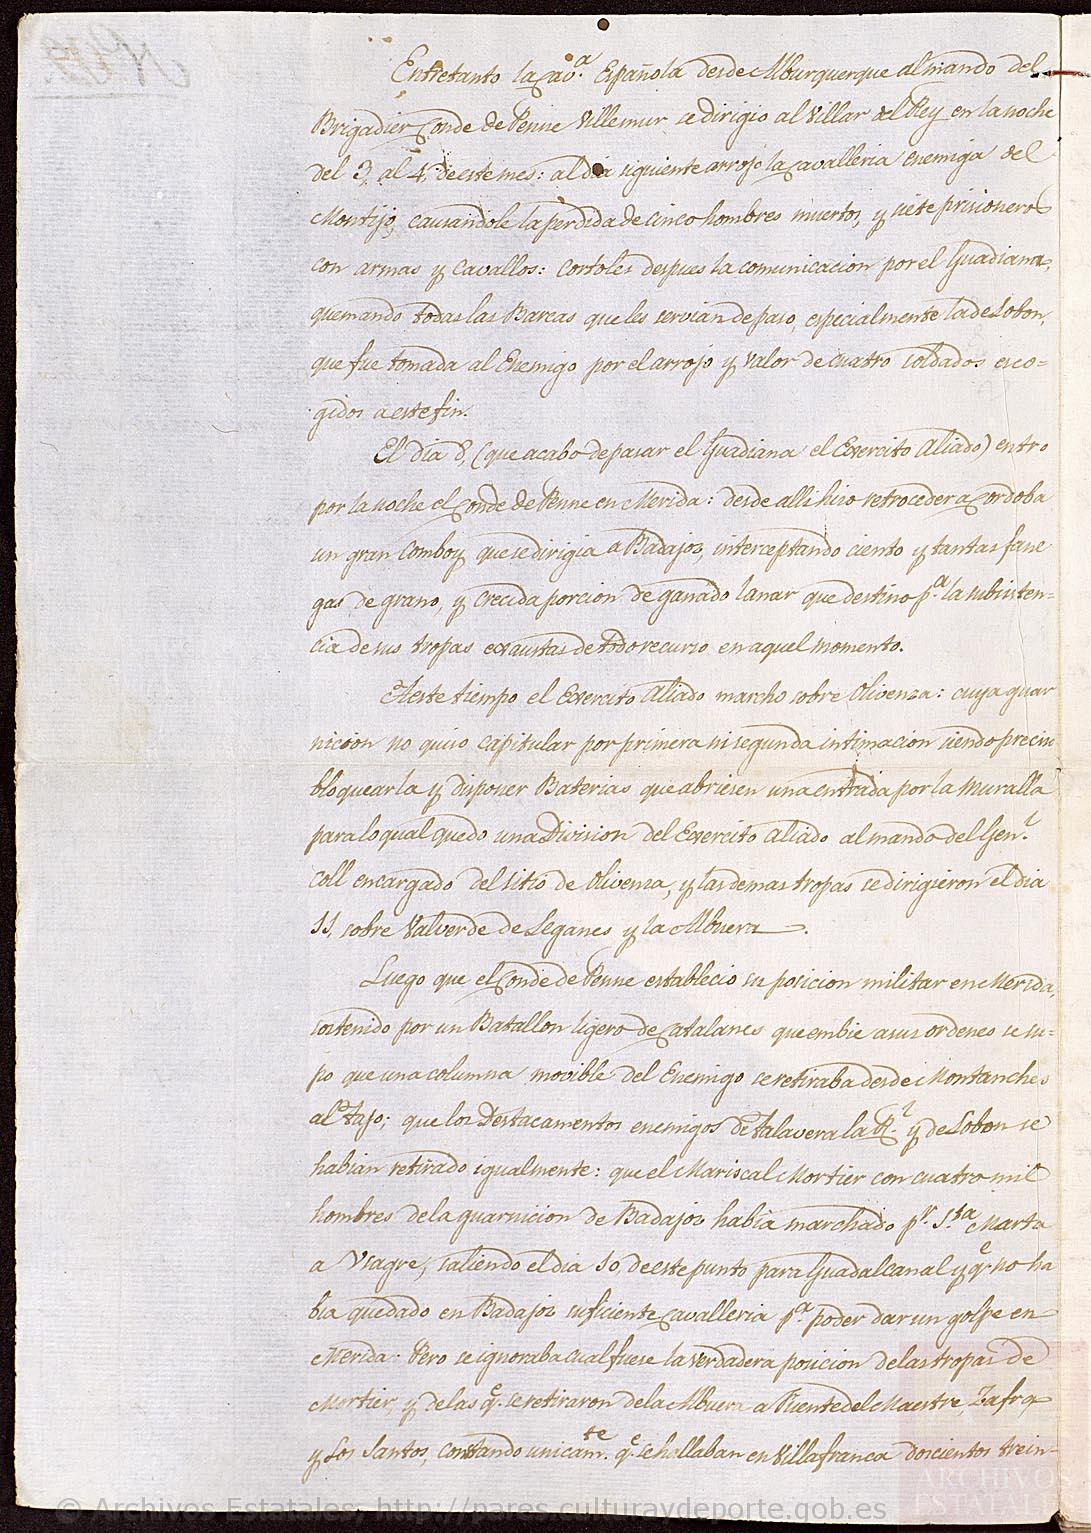 Entretanto la Cav.a Española desde Alburquerque al mando del
Brigadier Conde de Penne Villemur se dirigio al Villar del Rey en la noche
del 3, al 4, de este mes: al dia siguiente arrojo la Cavalleria enemiga del
Montijo, causandole la perdida de cinco hombres muertos, y siete prisioneros
con armas y cavallos: cortoles despues la comunicacion por el Guadiana,
quemando todas las Barcas que les servian de paso, especialmente la de Lobon,
que fue tomada al Enemigo por el arrojo y valor de cuatro soldados esco=
gidos a este fin.
El dia 8, (que acabo de pasar el Guadiana el Exercito Aliado) entro
por la noche el Conde de Penne en Merida: desde alli hizo retroceder a Cordoba
un gran Comboy que se dirigia a Badajoz, interceptando ciento y tantas fane
gas de grano, y crecida porcion de ganado lanar que destino p.a la subsisten=
cia de sus tropas exaustas de todo recurso en aquel momento.
A este tiempo el Exercito Aliado marcho sobre Olivenza: cuya guar
nicion no quiso capitular por primera ni segunda intimacion siendo preciso
bloquearla y disponer Baterias que abriesen una entrada por la Muralla
para lo qual quedo una Division del Exercito Aliado al mando del Gen.l
Coll encargado del sitio de Olivenza, y las demas tropas se dirigieron el dia
11, sobre Valverde de Leganes y la Albuera.
Luego que el Conde de Penne establecio su posicion militar en Merida,
sostenido por un Batallon ligero de Catalanes que embie a sus ordenes se su=
po que una columna movible del Enemigo se retiraba desde Montanches
al Tajo; que los Destacamentos enemigos de Talavera la R.l y de Lobon se
habian retirado igualmente: que el Mariscal Mortier con cuatro mil
hombres de la guarnicion de Badajoz habia marchado p.r S.ta Marta
a Usagre, saliendo el dia 10, de este punto para Guadalcanal y q.e no ha
bia quedado en Badajoz suficiente Cavalleria p.a poder dar un golpe en
Merida. Pero se ignoraba cual fuese la verdadera posicion de las tropas de
Mortier, y de las q.e se retiraron de la Albuera a Fuente del Maestre, Zafra
y Los Santos, constando unicam.te q.e se hallaban en Villafranca doscientos trein-
© Archivos Estatales, http://pares.culturaydeporte.gob.es
ARCHIVOS
ESTATALES